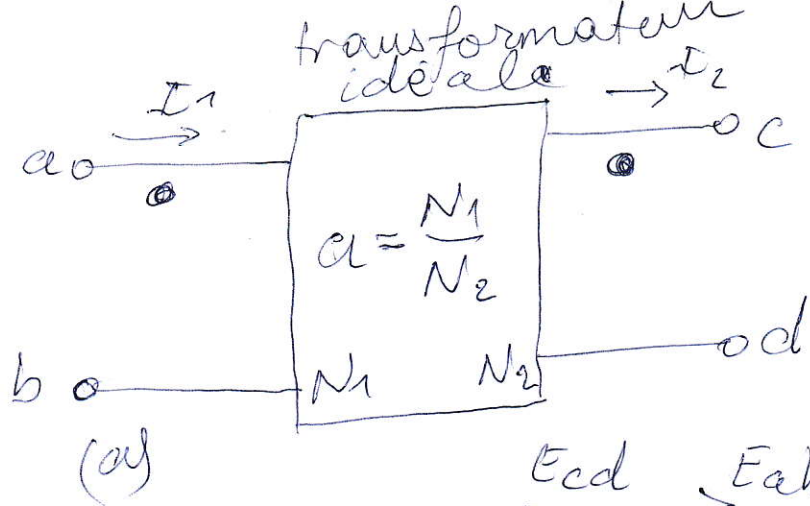 transformateur
idéale
I1 I2
a c
a = N1/N2
b N1 N2 d
(a)
Ecd Eab